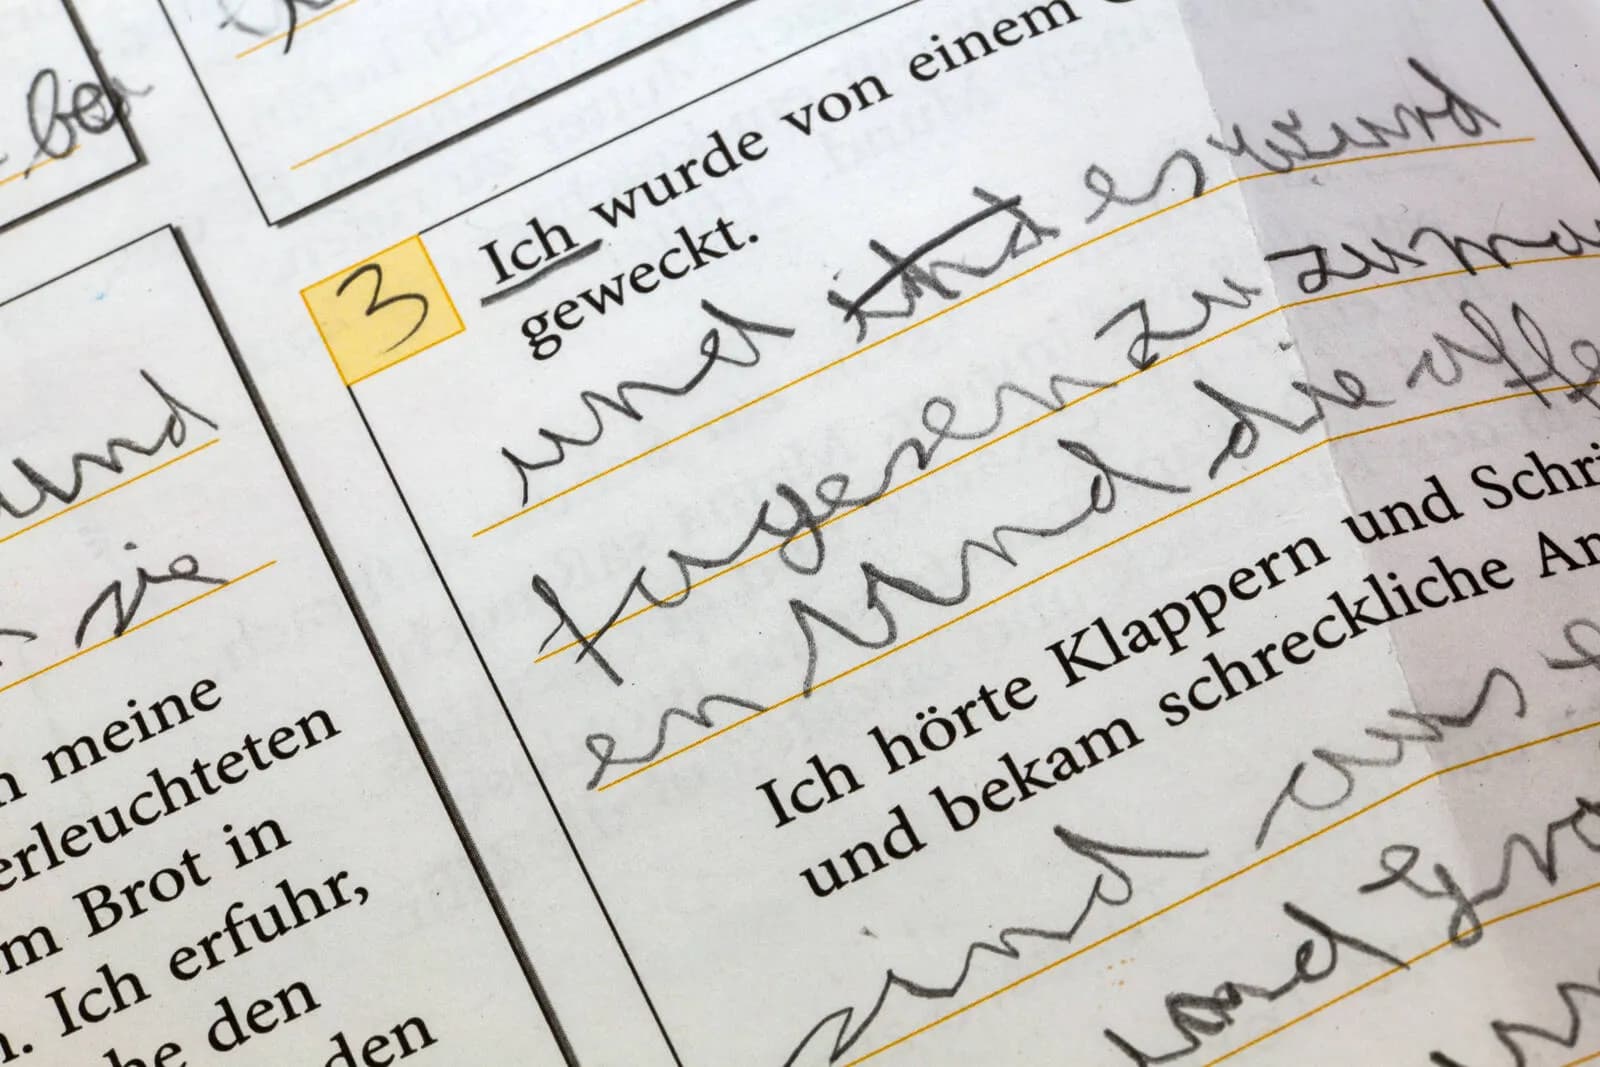 bei
und
sie
n meine
erleuchteten
m Brot in
n. Ich erfuhr,
den
den
3
Ich wurde von einem
geweckt.
und es wird
zu zu ma
en und die offe
Ich hörte Klappern und Schri
und bekam schreckliche An
sind aus e
und gro